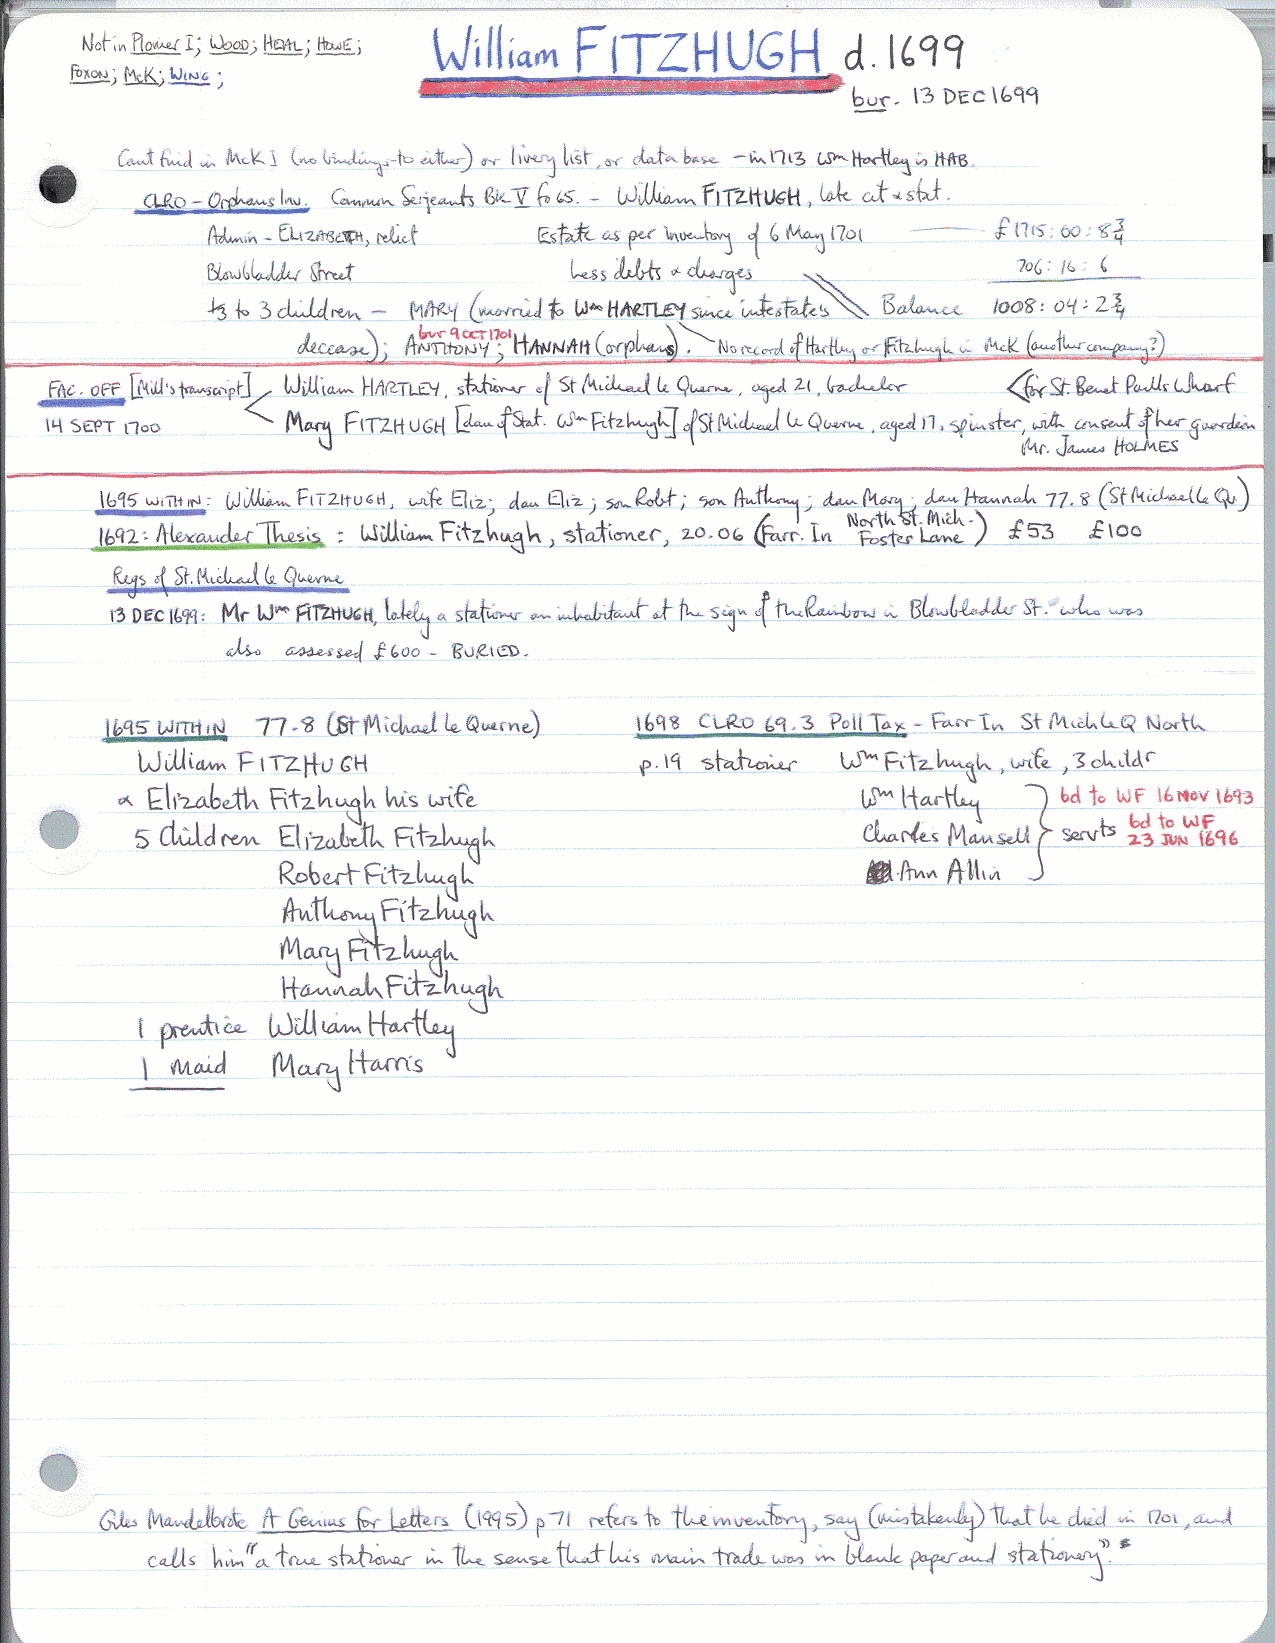 Not in Plomer I; Wood; Heal; Howe;
William FITZHUGH d. 1699
Foxon; McK; Wing;
bur. 13 DEC 1699
Cant find in McK I (no bindings to either) or livery list, or data base – in 1713 Wm Hartley is HAB.
CLRO – Orphans Inv. Common Serjeants Bk V fo 65. – William FITZHUGH, late cit & stat.
Admin – ELIZABETH, relict Estate as per inventory of 6 May 1701 — £1715:00:8¾
Blowbladder Street Less debts & charges 706:16:6
⅓ to 3 children – MARY (married to Wm HARTLEY since intestate's Balance 1008:04:2¾
bur 9 OCT 1701
decease); ANTHONY; HANNAH (orphans). No record of Hartley or Fitzhugh in McK (another company?)
FAC. OFF [Mill's transcript] William HARTLEY, stationer of St Michael le Querne, aged 21, bachelor < for St. Benet Pauls Wharf
14 SEPT 1700 Mary FITZHUGH [dau of Stat. Wm Fitzhugh] of St Michael le Querne, aged 17, spinster, with consent of her guardian
Mr. James HOLMES
1695 WITHIN: William FITZHUGH, wife Eliz; dau Eliz; son Robt; son Anthony; dau Mary; dau Hannah 77.8 (St Michael le Qu)
1692: Alexander Thesis: William Fitzhugh, stationer, 20.06 (Farr. In North St. Mich - Foster Lane) £53 £100
Regs of St. Michael le Querne
13 DEC 1699: Mr Wm FITZHUGH, lately a stationer an inhabitant at the sign of the Rainbow in Blowbladder St. who was
also assessed £600 – BURIED.
1695 WITHIN 77.8 (St Michael le Querne)
William FITZHUGH
& Elizabeth Fitzhugh his wife
5 Children Elizabeth Fitzhugh
Robert Fitzhugh
Anthony Fitzhugh
Mary Fitzhugh
Hannah Fitzhugh
1 prentice William Hartley
1 Maid Mary Harris
1698 CLRO 69.3 Poll Tax – Farr In St Mich le Q North
p.19 stationer Wm Fitzhugh, wife, 3 childr
Wm Hartley bd to WF 16 NOV 1693
Charles Mansell } servts bd to WF 23 JUN 1696
Ann Allin
Giles Mandelbrote A Genius for Letters (1995) p 71 refers to the inventory, say (mistakenly) that he died in 1701, and
calls him "a true stationer in the sense that his main trade was in blank paper and stationery".